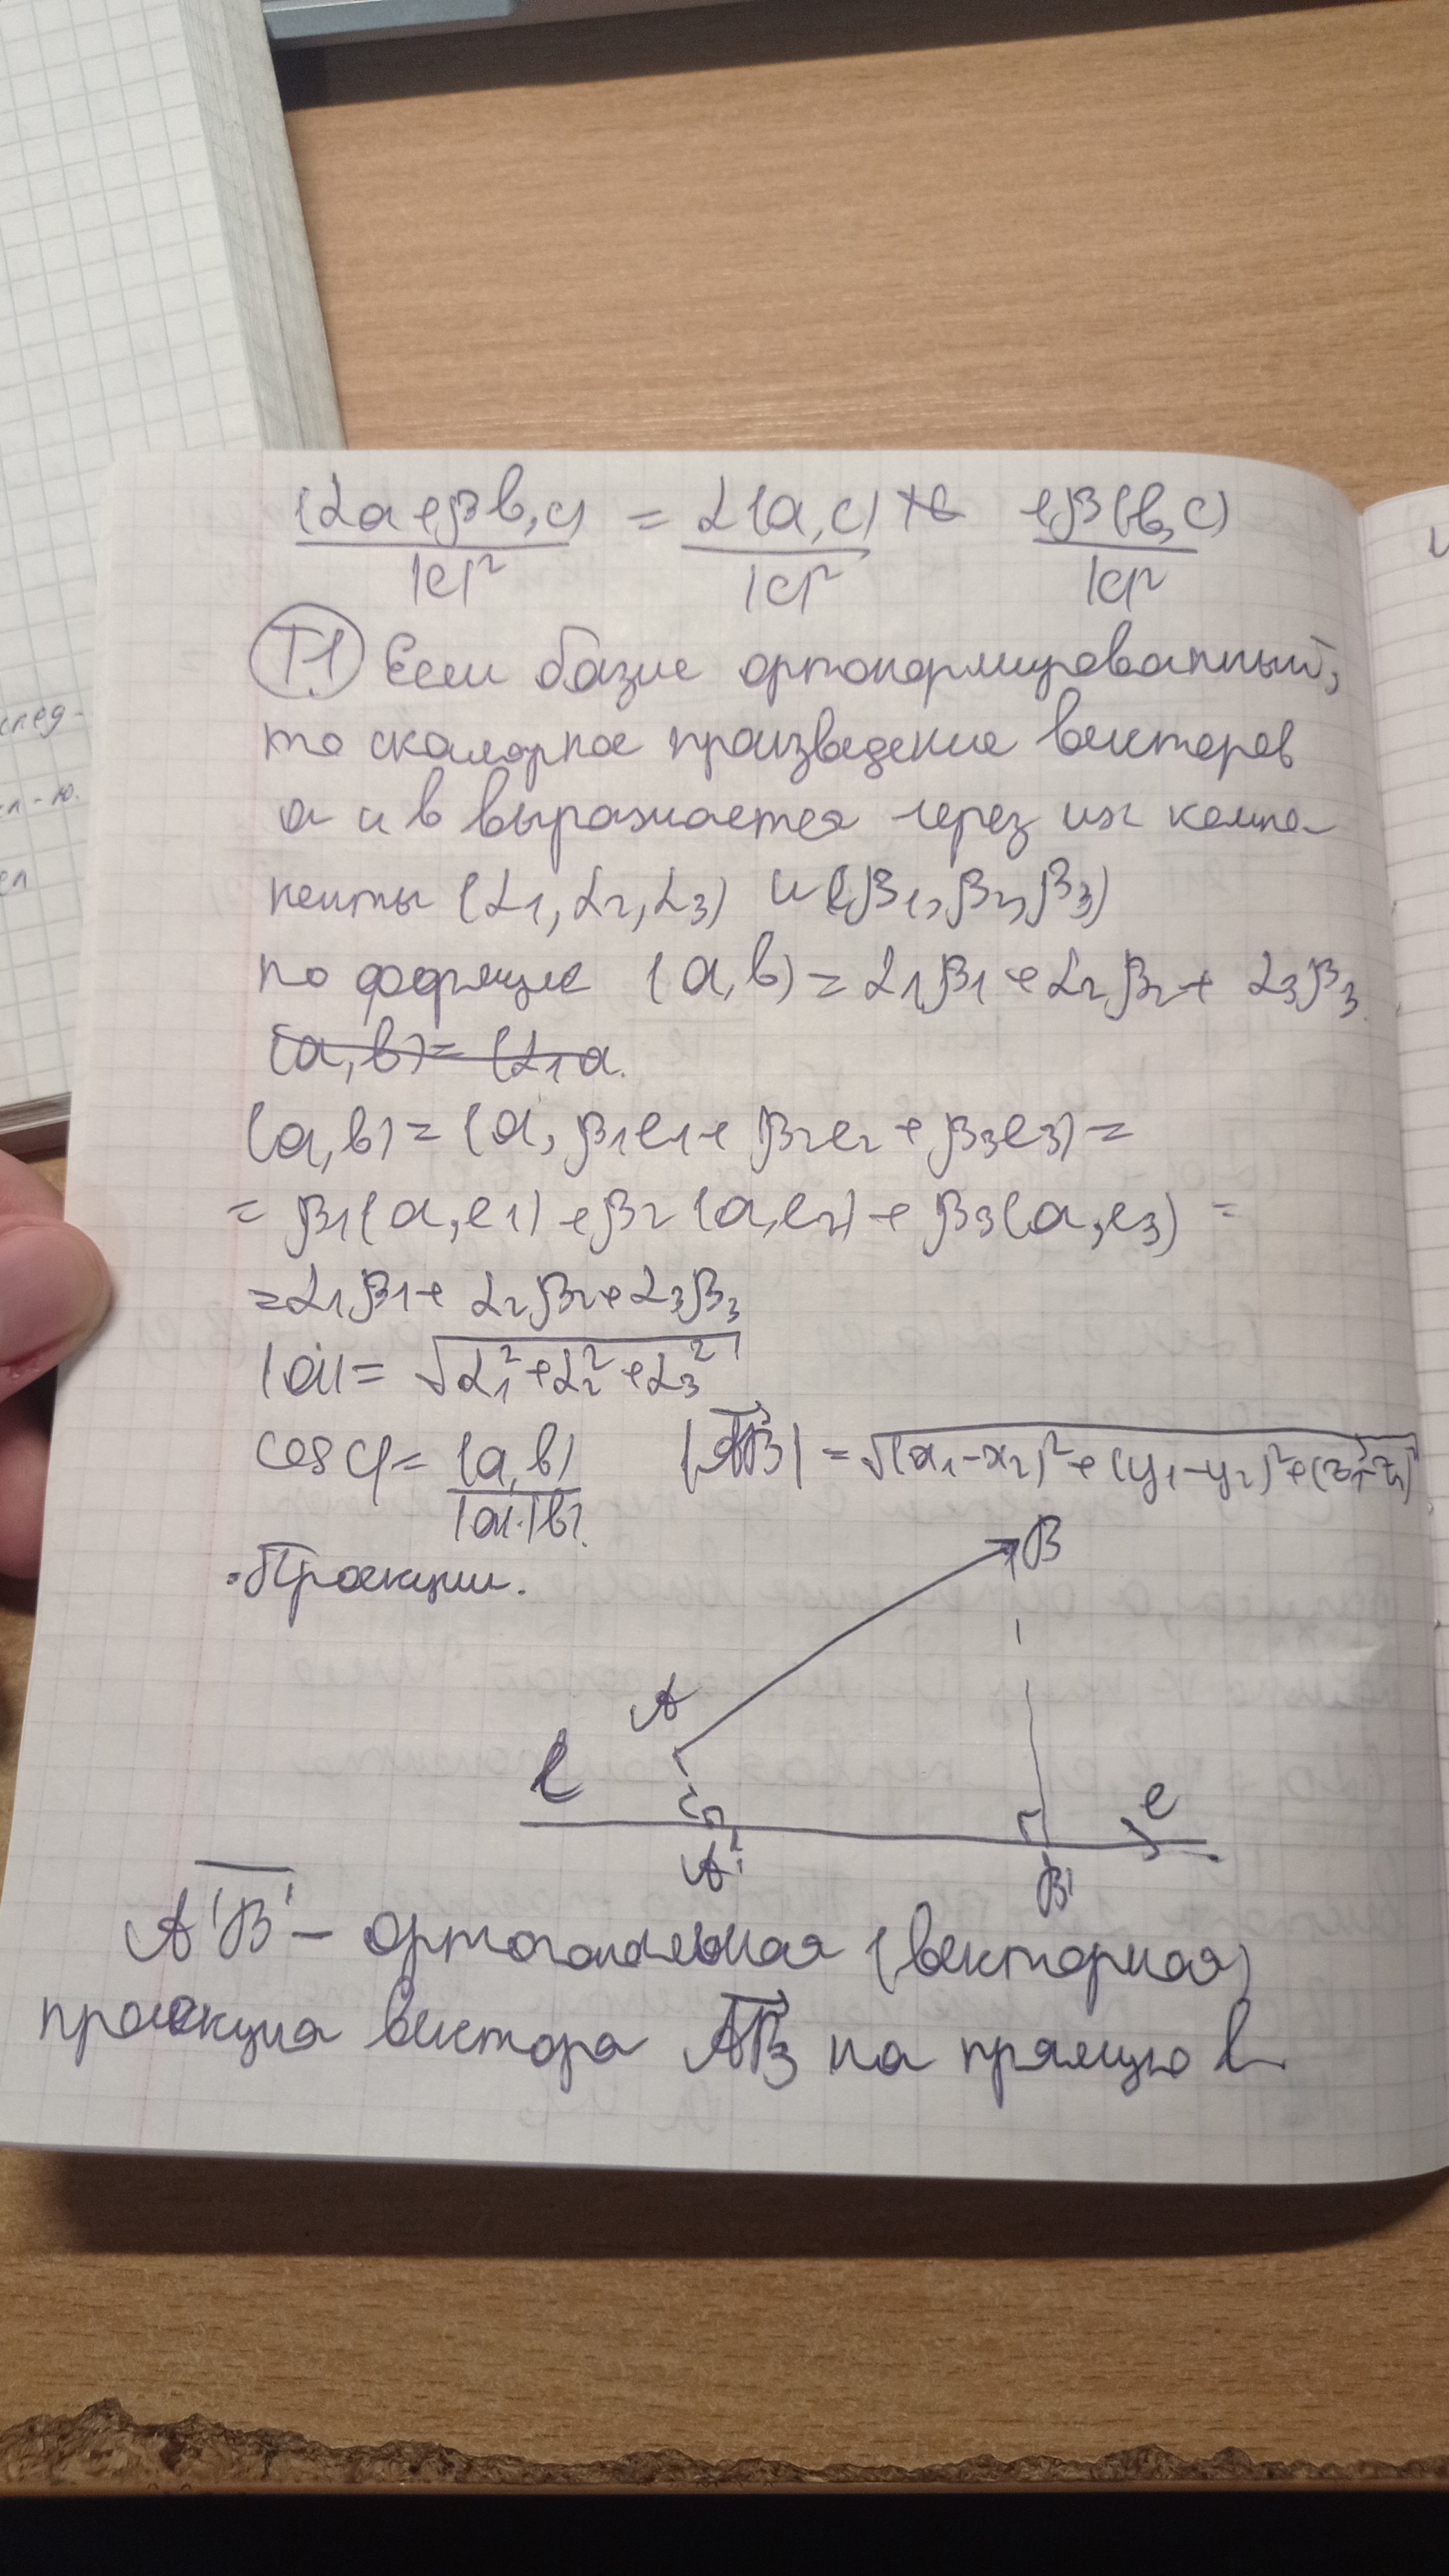 (αa+βb,c)/|c|² = α(a,c)/|c|² +β(b,c)/|c|²
Т.1 Если базис ортонормированный,
то скалярное произведение векторов
а и в выражается через их компо-
ненты (α1, α2, α3) и (β1, β2, β3)
по формуле (a,b)=α1β1+α2β2+α3β3
(a,b)=(α1a.
(a,b)=(a, β1e1+β2e2+β3e3)=
=β1(a,e1)+β2(a,e2)+β3(a,e3)=
=α1β1+α2β2+α3β3
|a|=√(α1²+α2²+α3²)
cos φ=(a,b)/|a|·|b|. |AB|=√(x1-x2)²+(y1-y2)²+(z1-z2)²
·Проекции.
B
A
l
e
A'
B'
A'B' – ортогональная (векторная)
проекция вектора AB на прямую l
след-
л-ю.
ел